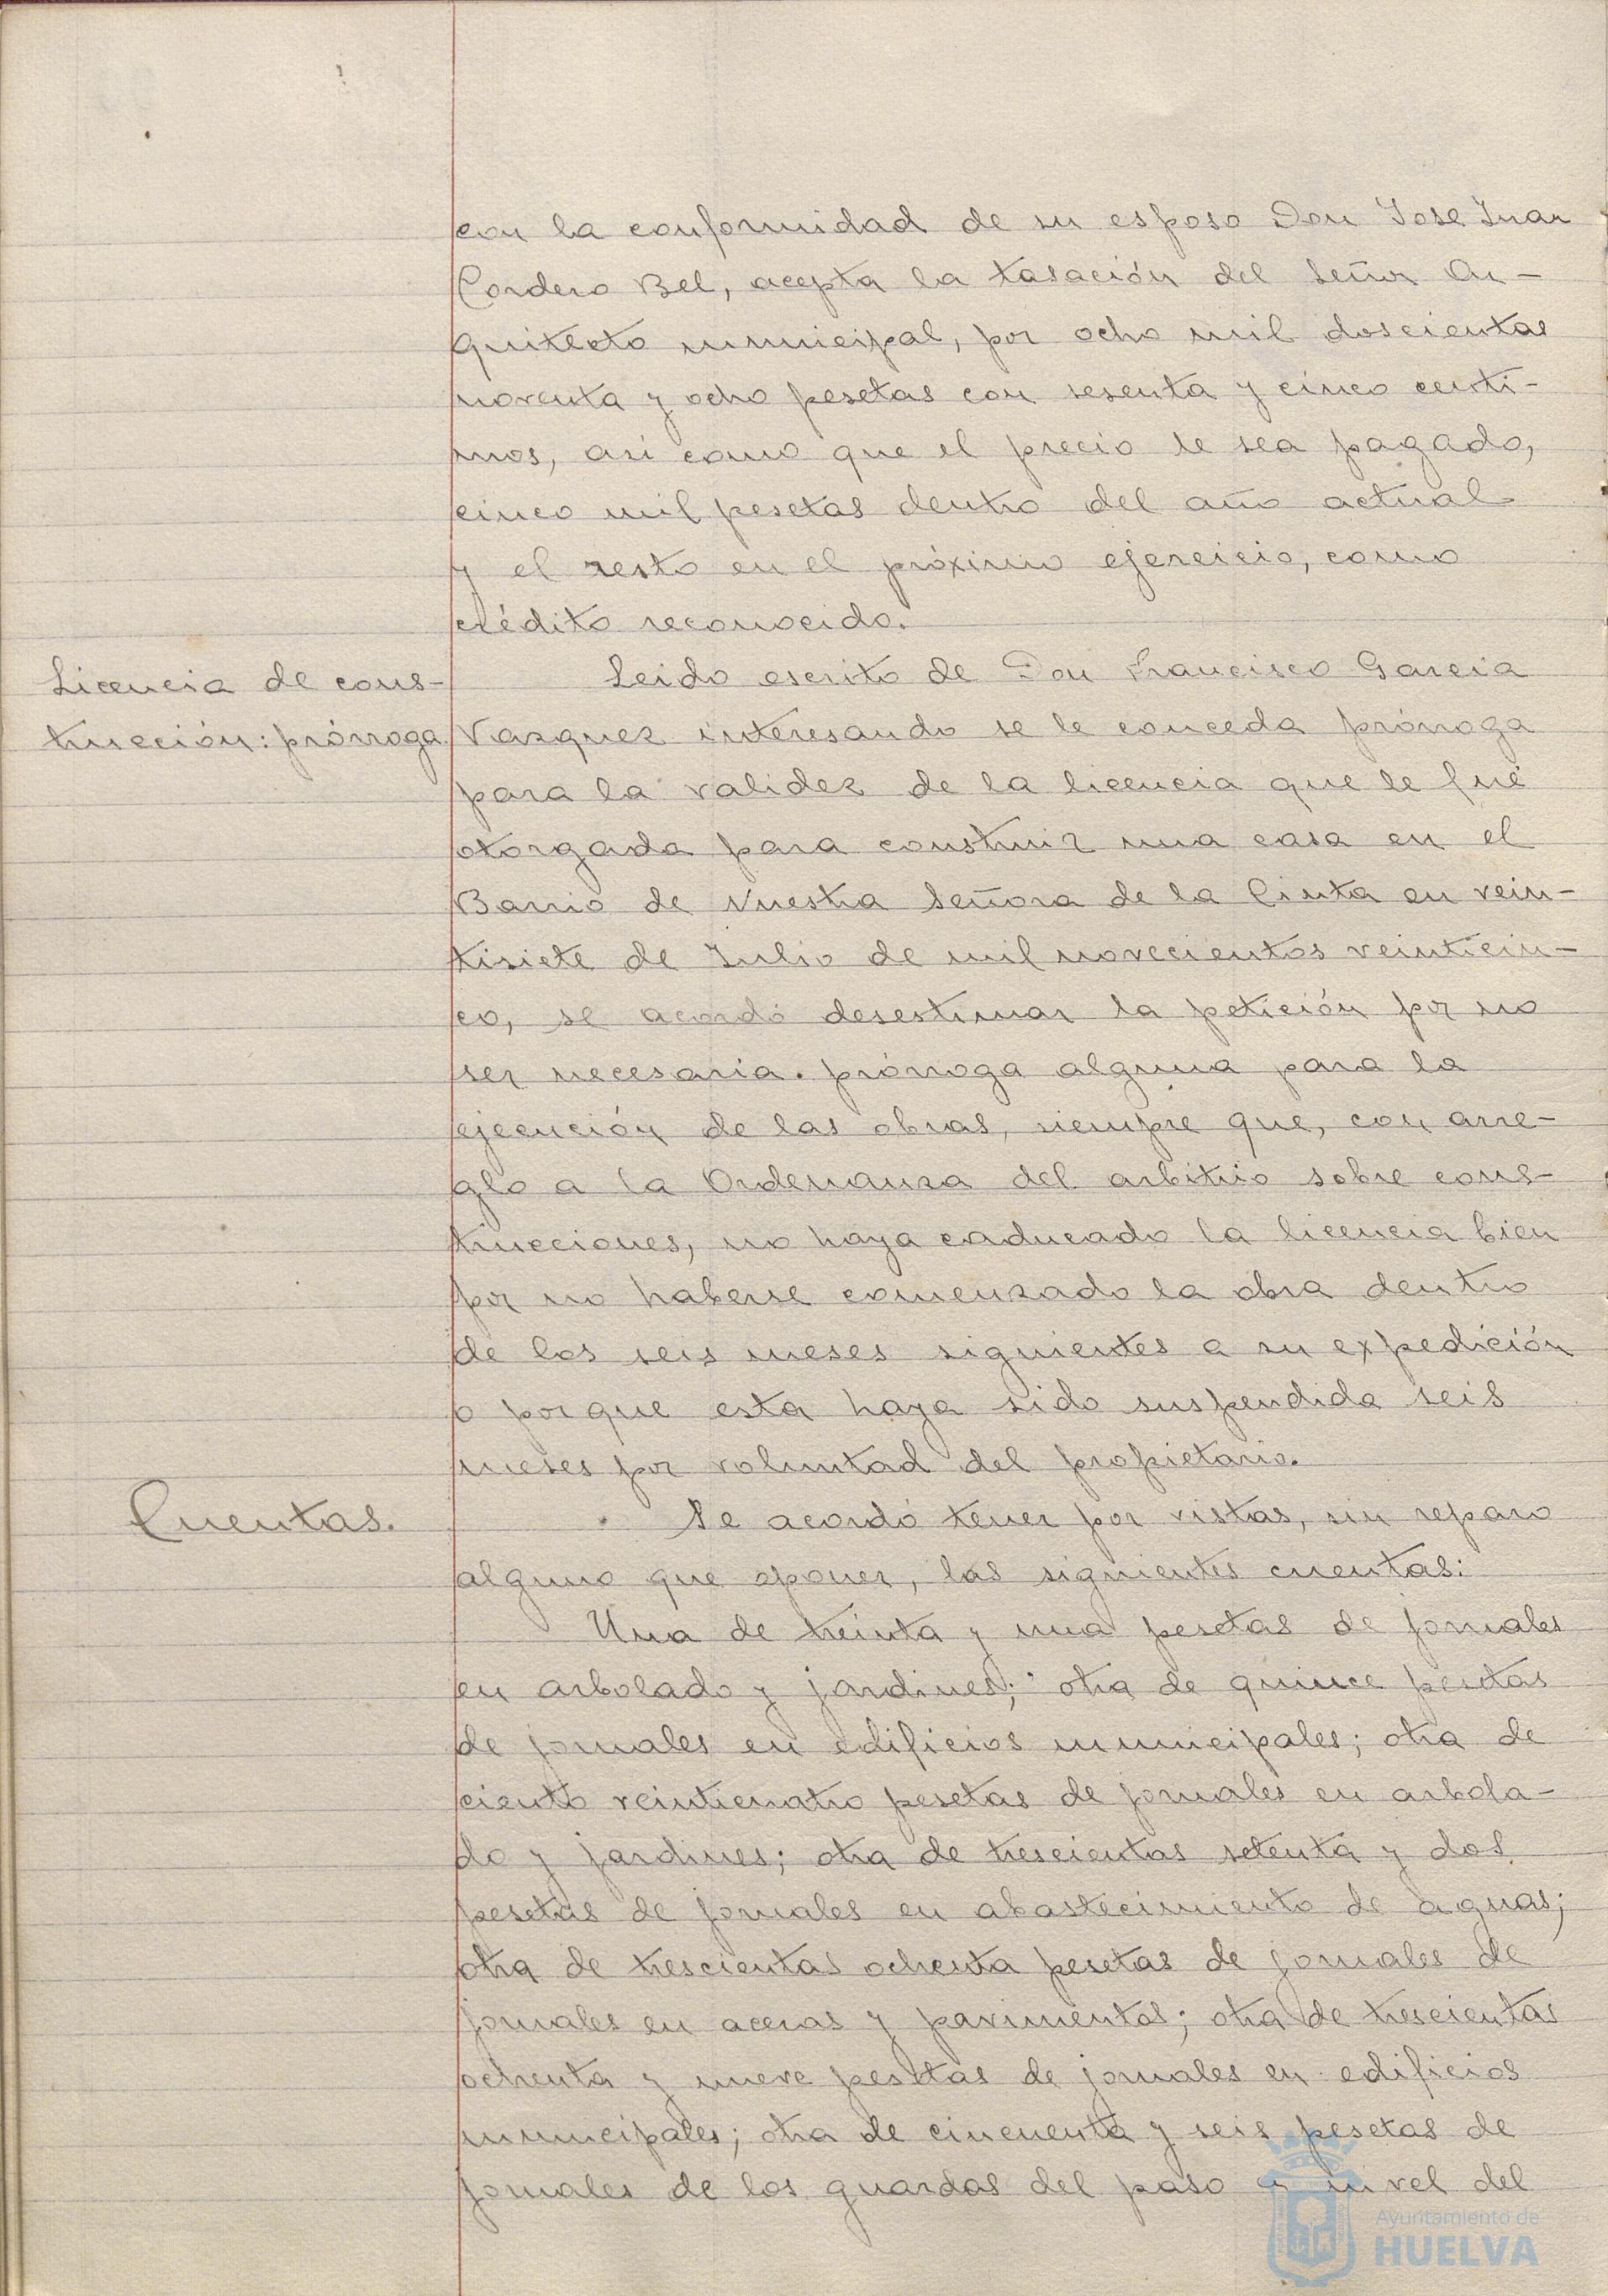 con la conformidad de su esposo Don Jose Juan
Cordero Bel, acepta la tasación del Señor Ar-
quitecto municipal, por ocho mil doscientas
noventa y ocho pesetas con sesenta y cinco centi-
mos, asi como que el precio le sea pagado,
cinco mil pesetas dentro del año actual
y el resto en el próximo ejercicio, como
crédito reconocido.
Licencia de cons-
trucción: prórroga
Leido escrito de Don Francisco Garcia
Vazquez interesando se le conceda prórroga
para la validez de la licencia que le fué
otorgada para construir una casa en el
Barrio de Nuestra Señora de la Cinta en vein-
tisiete de Julio de mil novecientos veinticin-
co, se acordó desestimar la petición por no
ser necesaria prórroga alguna para la
ejecución de las obras, siempre que, con arre-
glo a la Ordenanza del arbitrio sobre cons-
trucciones, no haya caducado la licencia bien
por no haberse comenzado la obra dentro
de los seis meses siguientes a su expedición
o porque esta haya sido suspendida seis
meses por voluntad del propietario.
Cuentas.
Se acordó tener por vistas, sin reparo
alguno que oponer, las siguientes cuentas:
Una de treinta y una pesetas de jornales
en arbolado y jardines; otra de quince pesetas
de jornales en edificios municipales; otra de
ciento veinticuatro pesetas de jornales en arbola-
do y jardines; otra de trescientas setenta y dos
pesetas de jornales en abastecimiento de aguas;
otra de trescientas ochenta pesetas de jornales de
jornales en aceras y pavimentos; otra de trescientas
ochenta y nueve pesetas de jornales en edificios
municipales; otra de cincuenta y seis pesetas de
jornales de los guardas del paso a nivel del
Ayuntamiento de
HUELVA